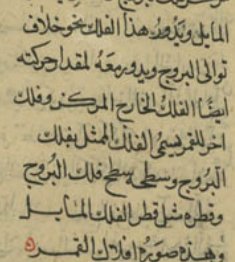 المايل ويدور هذا الفلك نحو خلاف
توالى البروج ويدور معه لمقدار حركته
ايضا الفلك الخارج المركز وفلك
اخر للقمر يسمى الفلك الممثل بفلك
البروج وسطحه سطح فلك البروج
وقطره مثل قطر الفلك المايل
وبهذه صورة افلاك القمر ه